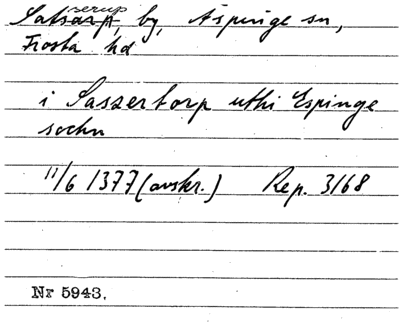 serup
Satsarp, by, Äspinge sn,
Frosta hd
i Saszertorp uthi Espinge
sochn
11/6 1377 (avskr.) Rep. 3168
Nr 5943.